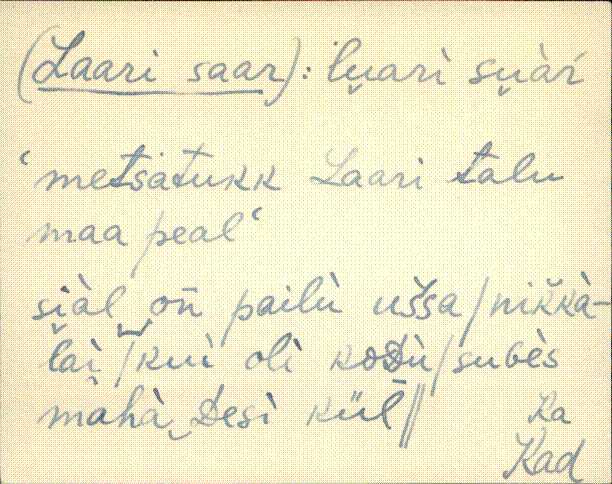 (Laari saar): lu̯ari su̯àŕ
‘metsatukk Laari talu
maa peal‘
si̯àl‿on̄ pailù uš̌sa/nik̆kà-
lai̯/kui oli koᴅù/subès
mahà‿ᴅesi kül̄//
Ka
Kad